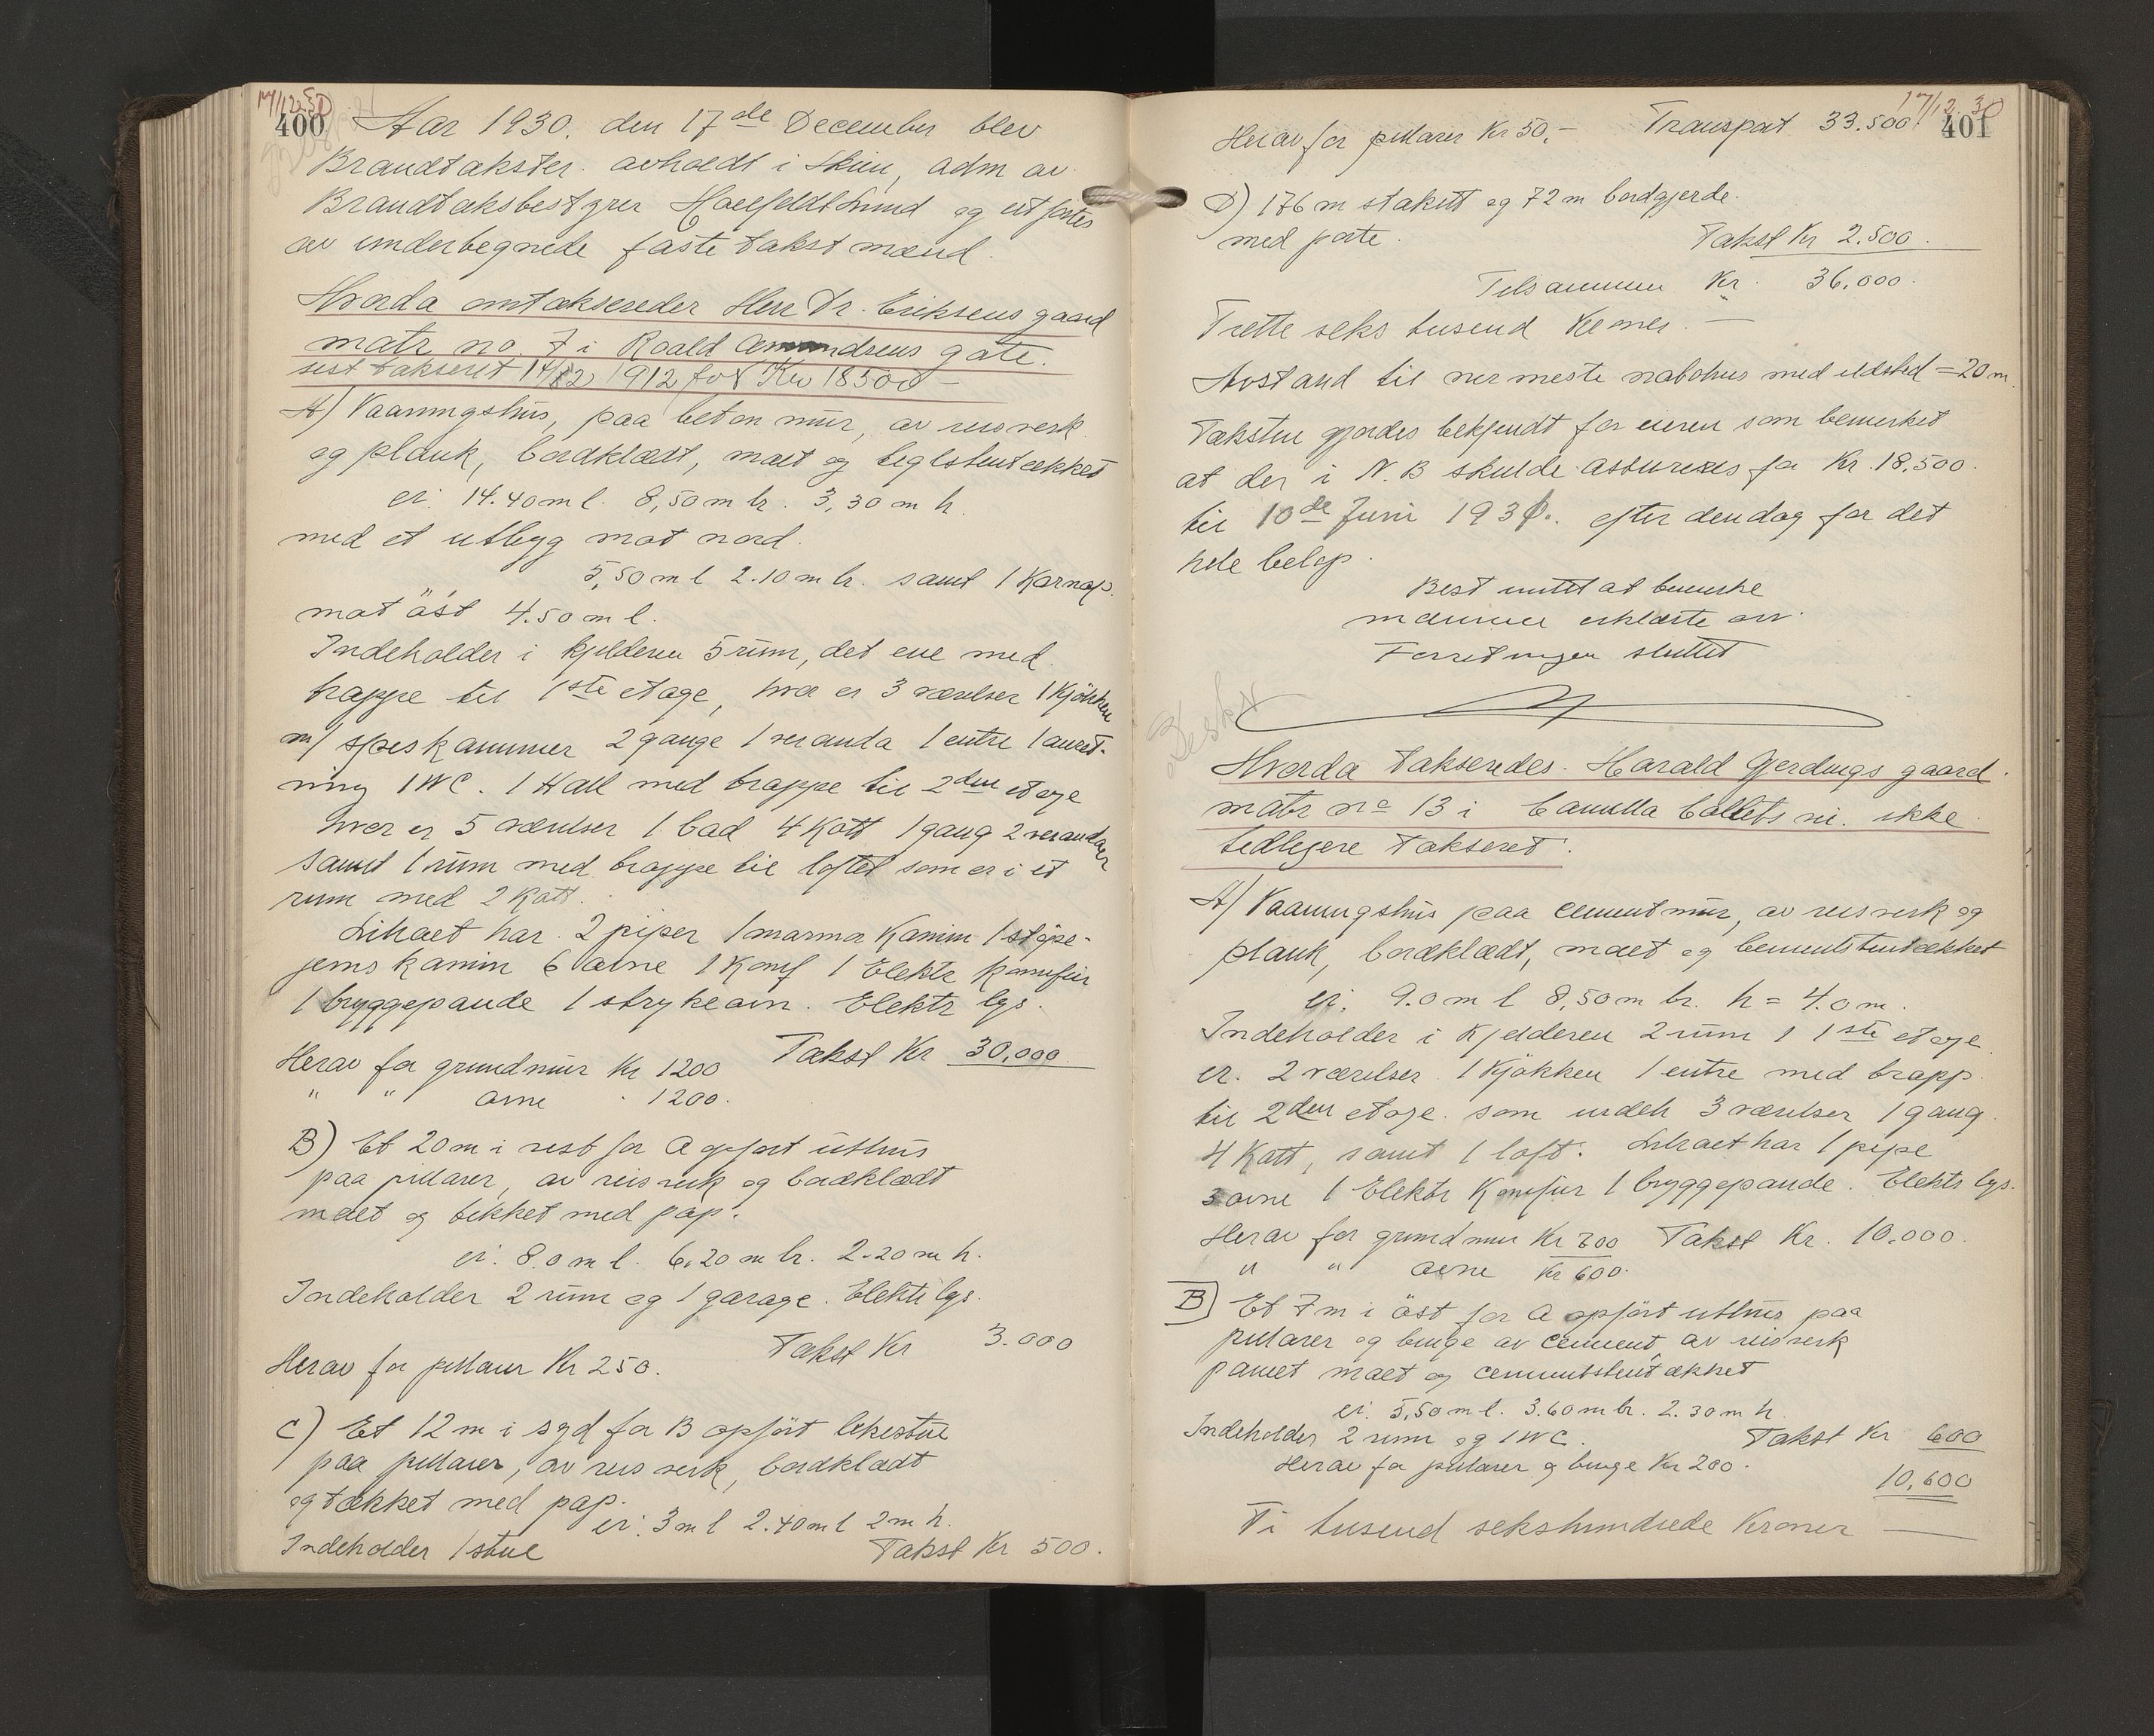 17/12 30
400
Aar 1930. den 17de December blev
Brandtakster avholdt i Skien, adm av
Brandtaksbestyrer Hoelfeldt Lund og utførtes
av undertegnede faste takstmænd.
Hvorda omtakseredes Herr Dr. Eriksens gaard
matr no. 7 i Roald Amundsens gate.
sist takseret 14/12 1912 for Kr 18500 –
A) Vaaningshus, paa beton mur, av reisverk
og plank, bordklædt, malt og teglstentækket
er: 14.40 m l. 8,50 m br. 3,30 m h.
med et utbygg mot nord.
5,50 m l 2.10 m br. samt 1 Karnap.
mot öst 4.50 m l.
Indeholder i kjelderen 5 rum, det ene med
trappe til 1ste etage, hvor er 3 værelser 1 Kjökken
m/ spiskammer 2 gange 1 veranda 1 entre 1 anret-
ning 1 WC. 1 Hall med trappe til 2den etage
hvor er 5 værelser 1 bad 4 Kott 1 gang 2 verandaer
samt 1 rum med trappe til loftet som er i et
rum med 2 Kott.
Likaet har 2 piper 1 marmor Kamin 1 støpe-
jerns kamin 6 ovne 1 Komf 1 Elektr komfur
1 bryggepande 1 strykeovn. Elektr lys.
Herav for grundmur Kr 1200 Takst Kr 30,000
" " ovne " 1200.
B) Et 20 m i vest for A opført uthus
paa pillarer, av reisverk og bordklædt
malt og tekket med pap.
er: 8.0 m l. 6,20 m br. 2.20 m h.
Indeholder 2 rum og 1 garage. Elektr lys.
Takst Kr 3.000
Herav for pillarer Kr 250.
C) Et 12 m i syd for B opført lekestue
paa pillarer, av reisverk, bordklædt
og tækket med pap.
er: 3 m l 2.40 m l 2 m h.
Indeholder 1 stue Takst Kr 500.
17/12 30
401
Herav for pillarer Kr 50,- Transport 33.500
D) 176 m stakitt og 72 m bordgjerde.
med porte. Takst Kr 2.500.
Tilsammen Kr. 36,000.
Trette seks tusend Kroner. —
Avstand til nermeste nabohus med ildsted = 20 m.
Taksten gjordes bekjendt for eieren som bemerket
at der i N.B skulde assureres for Kr. 18,500.
til 10de Juni 1931. efter den dag for det
hele beløp.
Best intet at bemerke
mænnene erklærte ov.
Forretningen sluttet
Hvorda takseredes. Harald Gjerdings gaard.
matr no 13 i Camilla Collets vei. ikke
tidligere takseret.
A) Vaaningshus paa cementmur, av reisverk og
plank, bordklædt, malt og cementstentækket
er: 9.0 m l 8,50 m br. h = 4.0 m.
Indeholder i Kjelderen 2 rum i 1ste etage
er. 2 værelser 1 Kjökken 1 entre med trapp
til 2den etage. som indeh 3 værelser 1 gang
4 Kott, samt 1 loft. Likaet har 1 pipe
3 ovne 1 Elektr Komfur 1 bryggepande. Elektr lys.
Herav for grundmur Kr 700 Takst Kr. 10.000.
" " ovne Kr 600.
B) Et 7 m i öst for A opført uthus paa
pillarer og binge av cement, av reisverk
panelt malt og cementstentækket
er. 5,50 m l. 3.60 m br. 2.30 m h
Indeholder 2 rum og 1 WC. Takst Kr 600
Herav for pillarer og binge Kr 200.
10,600
Ti tusend sekshundrede Kroner —